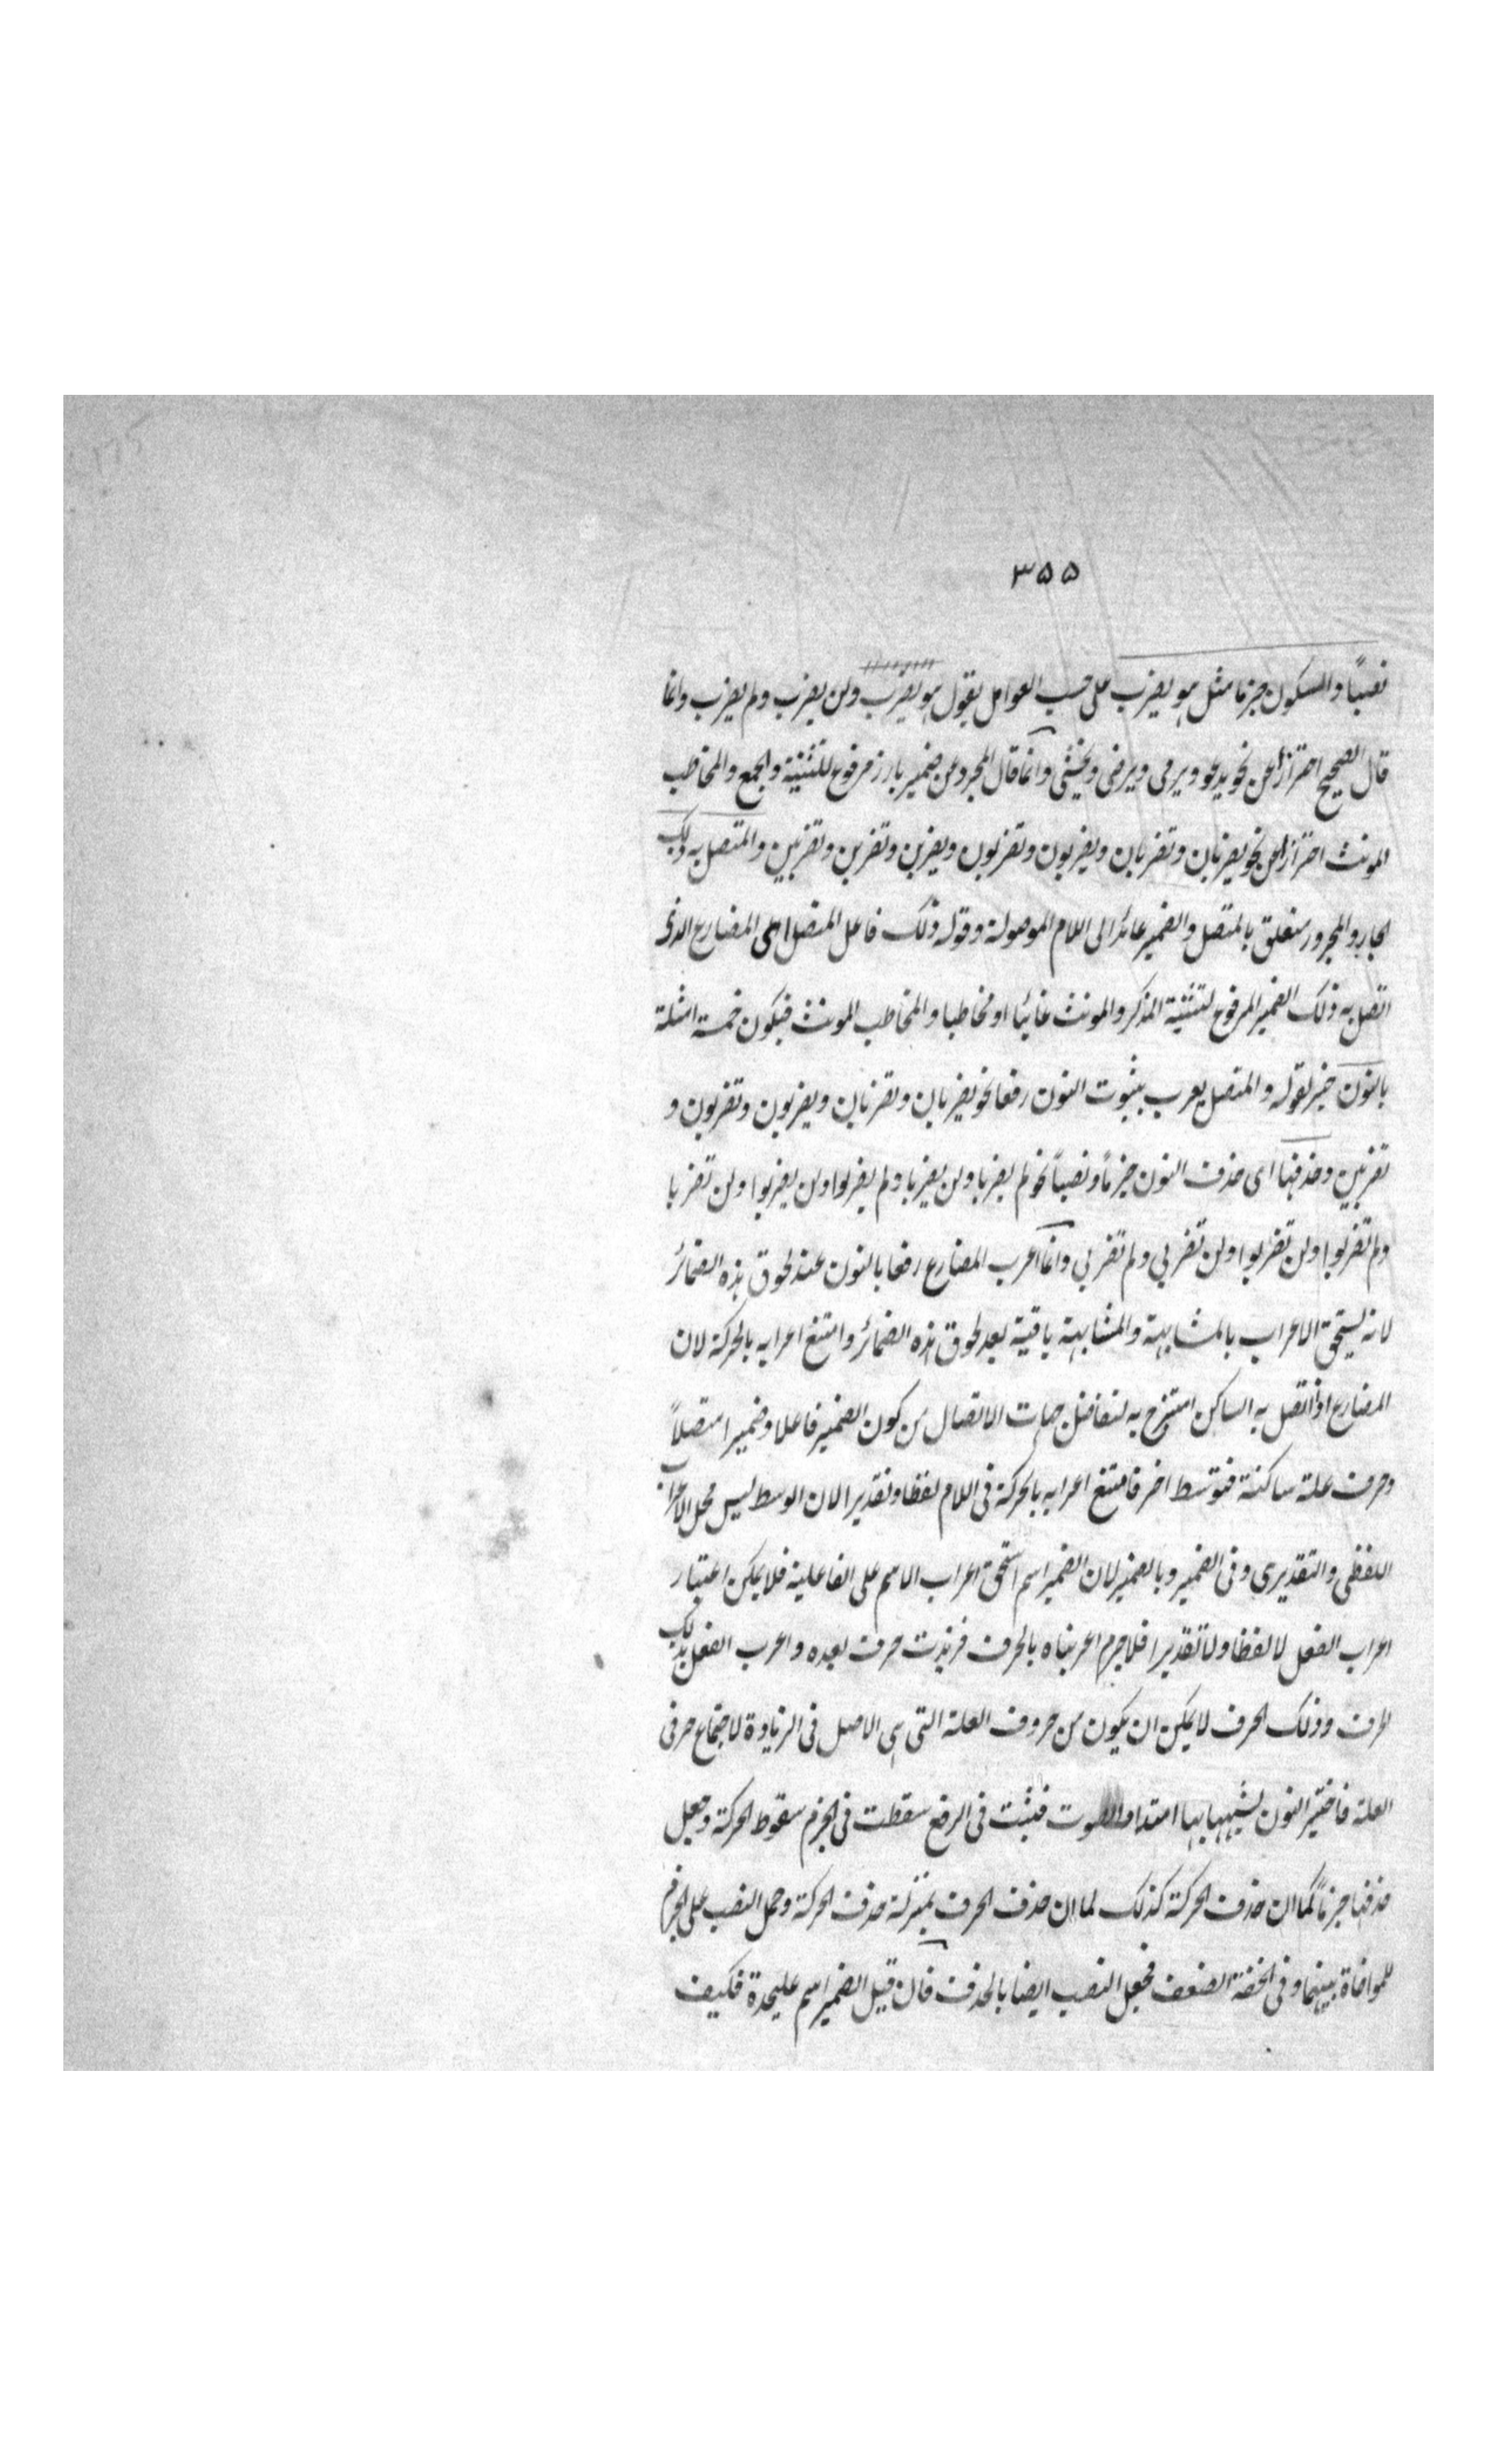 ٣٥٥
نصباً والسكون جزما مثل هو يضرب على حسب العوامل يقول هو يضرب ولن يضرب ولم يضرب وانما
قال الصحيح احترازا عن نحو يدعو ويرمى ويرضى ويخشى وانما قال المجرد عن ضمير بارز مرفوع للتثنية والجمع والمخاطب
المونث احترازا عن نحو يضربان وتضربان ويضربون وتضربون ويضربن وتضربن وتضربين والمتصل به ذلك
الجار والمجرور متعلق بالمتصل والضمير عائد الى اللام الموصولة وقوله ذلك فاعل المتصل اى المضارع الذى
اتصل به ذلك الضمير المرفوع لتثنية المذكر والمونث غائبا او مخاطبا والمخاطب المونث فيكون خمسة امثلة
بالنون خبر لقوله والمتصل يعرب بثبوت النون رفعا نحو يضربان وتضربان ويضربون وتضربون و
تضربين وحذفها اى حذف النون جزماً ونصباً نحو لم يضربا ولن يضربا ولم يضربوا ولن يضربوا ولن تضربا
ولم تضربوا ولن تضربوا ولن تضربي ولم تضربي وانما اعرب المضارع رفعا بالنون عند لحوق هذه الضمائر
لانه يستحق الاعراب بالمشابهة والمشابهة باقية بعد لحوق هذه الضمائر وامتنع اعرابه بالحركة لان
المضارع اذا اتصل به الساكن امتزج به جهات الاتصال من كون الضمير فاعلا وضميرا متصلاً
وحرف علة ساكنة فتوسط اخر فامتنع اعرابه بالحركة فى اللام لفظا وتقديرا لان الوسط ليس محل الاعراب
اللفظى والتقديرى وفى الضمير وبالضمير لان الضمير اسم استحق اعراب الاسم على الفاعلية فلا يمكن اعتبار
اعراب الفعل لا لفظا ولا تقديرا فلا جرم اعربناه بالحرف فزيدت حرف بعده واعرب الفعل بذلك
الحرف وذلك الحرف لا يمكن ان يكون من حروف العلة التى هى الاصل فى الزيادة لاجتماع حرفى
العلة فاختير النون لشبهها بها امتداد الصوت فثبتت فى الرفع سقطت فى الجزم سقوط الحركة وجعل
حذفها جزماً كما ان حذف الحركة كذلك لما ان حذف الحرف بمنزلة حذف الحركة وحمل النصب على الجزم
للمواخاة بينهما وفى الخفة الضعف فجعل النصب ايضا بالحذف فان قيل الضمير اسم عليحدة فكيف